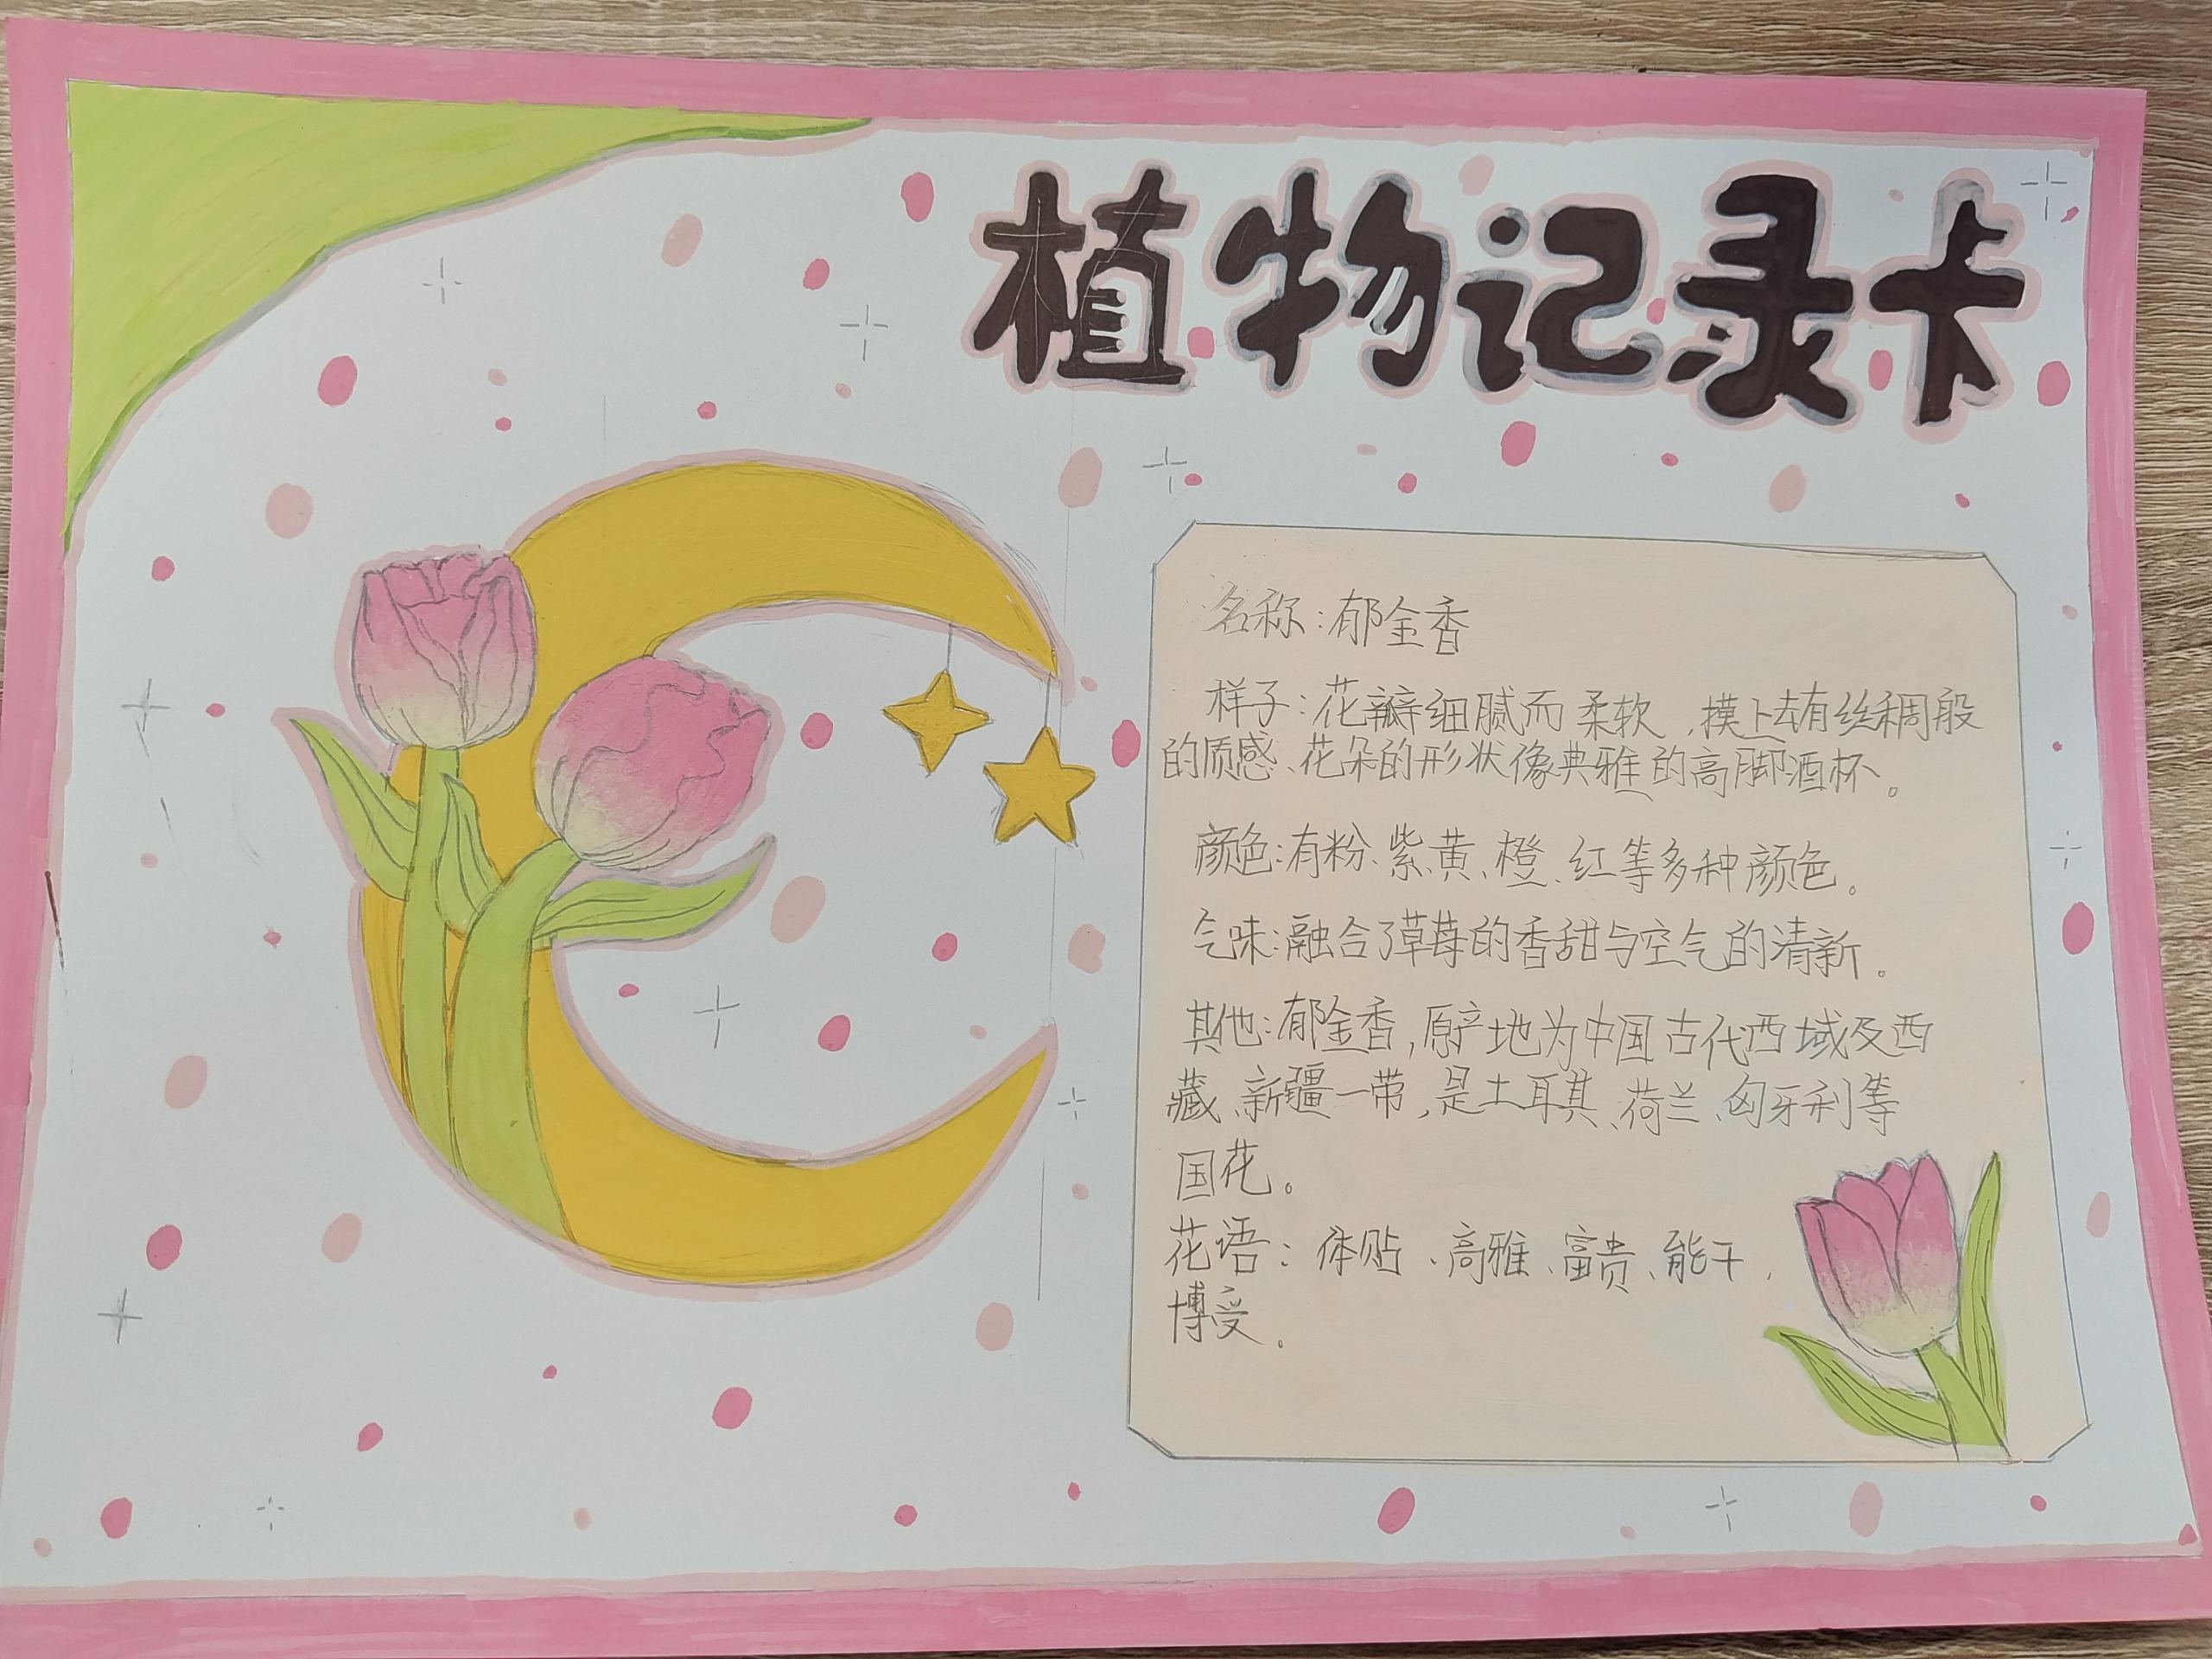 植物记录卡
名称:郁金香
样子:花瓣细腻而柔软,摸上去有丝稠般
的质感、花朵的形状像典雅的高脚酒杯。
颜色:有粉、紫、黄、橙、红等多种颜色。
气味:融合了草莓的香甜与空气的清新。
其他:郁金香,原产地为中国古代西域及西
藏、新疆一带,是土耳其、荷兰、匈牙利等
国花。
花语:体贴、高雅、富贵、能干,
博受。